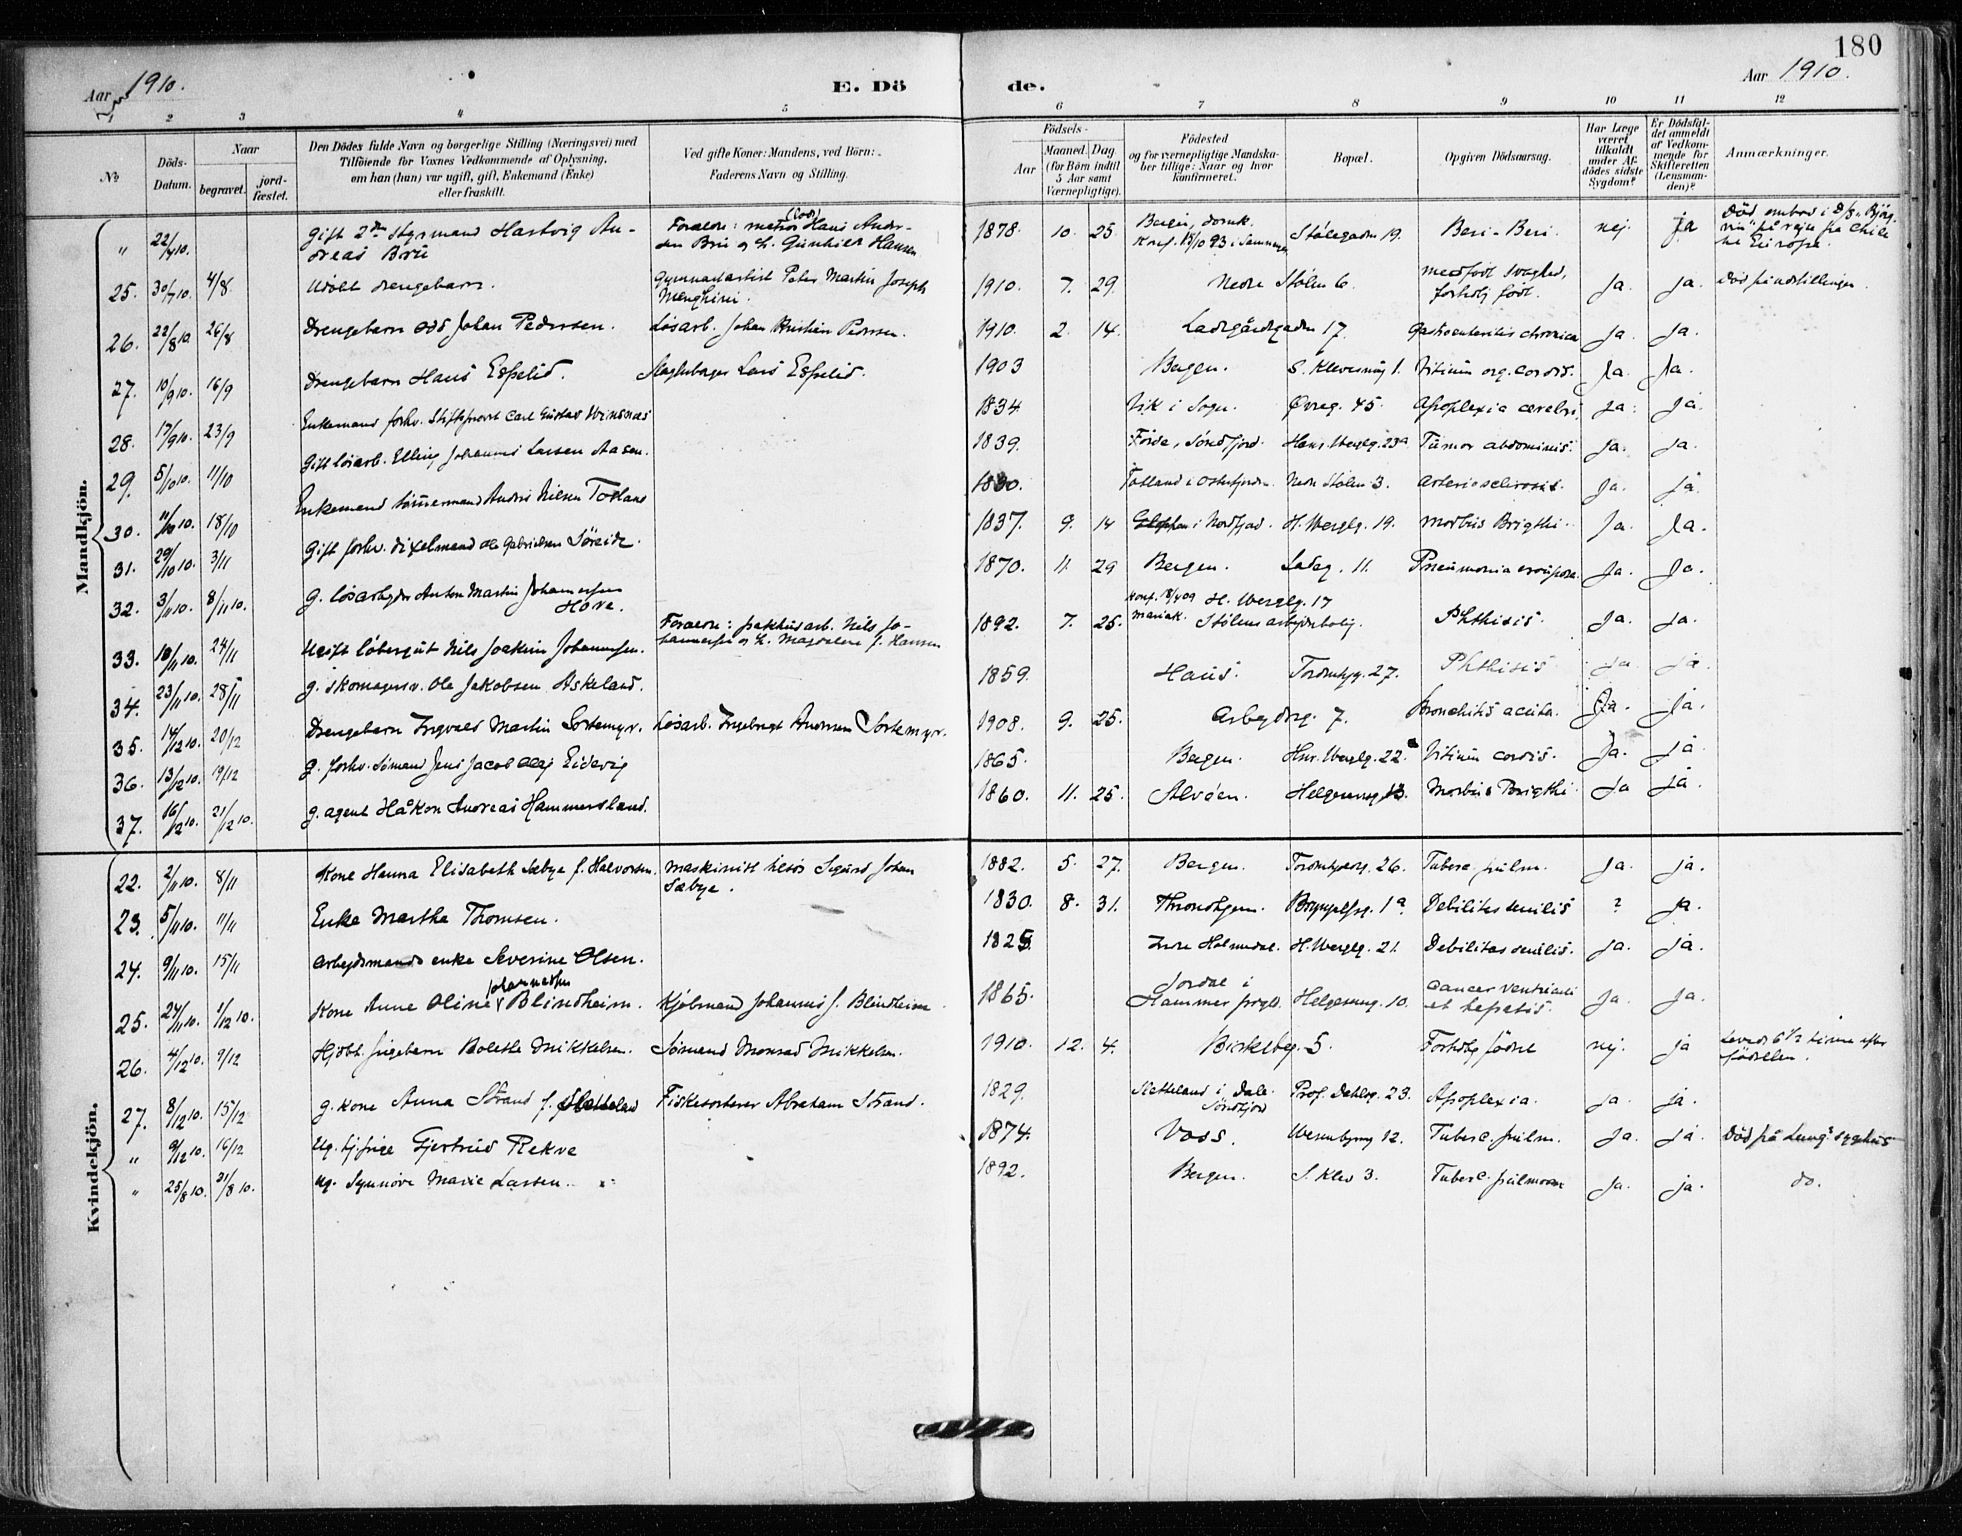 180
Aar 1910.
E. Dö
de.
Aar 1910.
1 2 3 4 5 6 7 8 9 10 11 12
№
Döds-Datum.
Naar
begravet.
jord-fæstet.
Den Dödes fulde Navn og borgerlige Stilling (Næringsvei) med
Tilföiende for Voxnes Vedkommende af Oplysning,
om han (hun) var ugift, gift, Enkemand (Enke)
eller fraskilt.
Ved gifte Koner: Mandens, ved Börn:
Faderens Navn og Stilling.
Födsels-
Aar
Maaned. Dag
(for Börn indtil
5 Aar samt
Værnepligtige).
Födested
og for værnepligtige Mandska-
ber tillige: Naar og hvor
konfirmeret.
Bopæl.
Opgiven Dödsaarsag.
Har Læge
været
tilkaldt
under Af-
dödes sidste
Sygdom?
Er Dödsfal-
det anmeldt
af Vedkom-
mende for
Skifteretten
(Lensman-
den)?
Anmærkninger.
Mandkjön.
" 22/7 10. Gift 2den Styrmand Hartvig An-
dreas Brü Forældre: Hans Ander-
sen Brü og h. Gunhild Hansen 1878. 10. 25. Bergen, domk.
Stølegaden 19. Beri-Beri. nej. ja Död ombord i D/S "Bjørg-
vin" på rejse fra Chile
til Europa.
25. 30/7 10. 4/8. Udöbt drengebarn. Gymnastartist Peter Martin Joseph
Menghini. 1910. 7. 29. Nedre Stølen 6. medfödt svaghed,
fortidlig födt. Ja. ja. Död på udstillingen
26. 22/8 10 26/8 Drengebarn Odd Johan Pedersen. Løsarb. Johan Kristian Pedersen. 1910. 2. 14. Ladegårdsgaden 17. Gastroenteritis chronica Ja. ja.
27. 10/9 10. 16/9 Drengebarn Hans Espelid. Lars Espelid. 1903 Bergen. S. Klevesmug 1. Vitium org. cordis. Ja. Ja.
28. 17/9 10. 23/9 Enkemand forhv. Stiftsprovst Carl Gustav Winsnes 1834 Vik i Sogn. Øvreg. 45. Apoplexia cerebri Ja. ja.
29. 5/10 10. 11/10 Gift løsarb. Elling Johannes Larsen Aasen. 1839. Førde, Søndfjord. Henr. Wergelg. 23a Tumor abdominis. Ja. ja.
30. 11/10 10. 18/10 Enkemand tømmermand Anders Nielsen Totland 1830. Totland i Osterfjorden. Nedre Stølen 3. Arteriosclerosis. Ja. ja
31. 29/10 10. 3/11 Gift forhv. dixelmand Ole Gabrielsen Søreide. 1837. 9. 14 Gloppen i Nordfjord. H. Wergelg. 19. morbus Brigthi. Ja. Ja.
32. 3/11 10. 8/11 10. g. løsarbejder Anton Martin Johannessen
Hove. 1870. 11. 29 Bergen. Ladeg. 11. Pneumonia crouposa. Ja. Ja.
33. 18/11 10. 24/11 Ugift løbergut Nils Joakim Johannessen. Forældre: pakhusarb. Nils Jo-
hannessen og h. Magdalene f. Hansen 1892. 7. 25. Konf. 18/4 09
Mariak. H. Wergelg. 17
Stølens arbejderbolig. Phthisis. Ja. ja.
34. 23/11 10. 28/11 g. skomagersv. Ole Jakobsen Askeland. 1859. Haus. 27. Phthisis ja. ja.
35. 14/12 10. 20/12 Drengebarn Ingvald Martin Sortemyr. Løsarb. Ingebrigt Andersen Sortemyr. 1908. 9. 25. Arbejderg. 7. Bronchitis acuta. Ja. ja.
36. 13/12 10. 19/12 g. forhv. sømand Jens Jacob Olaj Eidevig 1865. Bergen. Henr. Wergelg. 22. Vitium cordis. Ja. ja
37. 16/12 10. 21/12 10. g. agent Håkon Andreas Hammersland. 1860. 11. 25. Alvøen. Helgesensg. 13. Morbus Brigthi. Ja ja.
Kvindekjön.
22. 2/11 10. 8/11 Kone Hanna Elisabeth Sæbye f. Halvorsen. maskinist tilsøs Sigurd Johan
Sæbye. 1882. 5. 27. Bergen. 26. Tuberc. pulm. Ja. ja.
23. 5/11 10. 11/11 Enke Martha Thomsen. 1830. 8. 31. Throndhjem. 1a. Debilitas senilis ? ja.
24. 9/11 10. 15/11 Arbejdsmands enke Severine Olsen. 1825. Indre Holmedal. H. Wergelg. 21. Debilitas senilis. Ja. ja.
25. 24/11 10. 1/12 10. Kone Anne Oline Johannesen Blindheim. Kjølmand Johannes J. Blindheim 1865. Jordal i
Hammer prgld. Helgesensg. 10. Cancer ventriculi
et hepatis. Ja. ja.
26. 4/12 10. 9/12 Hjdbt. pigebarn Bolette Mikkelsen. Sømand Monrad Mikkelsen. 1910. 12. 4. Birkebg. 5. Fortidlig födsel nej. ja Leved 6 1/2 time efter
födselen.
27. 8/12 10. 15/12 g. kone Anna Strand f. Sletteland Fiskesorterer Abraham Strand. 1829. Sletteland i Dale
Söndfjord Prof. Dahlsg. 23. Apoplexia. ja. ja.
" 9/12 10. 16/12 Ug. tj.pige Gjertrud Rekve 1874. Voss. 12. Tuberc. pulm. Ja. ja. Död på Lungs. sygehus
" 25/8 10. 31/8 10. ug. Synnöve Marie Larsen. 1892. Bergen. S. Klev 3. Tuberc. pulmonum Ja. ja. do.